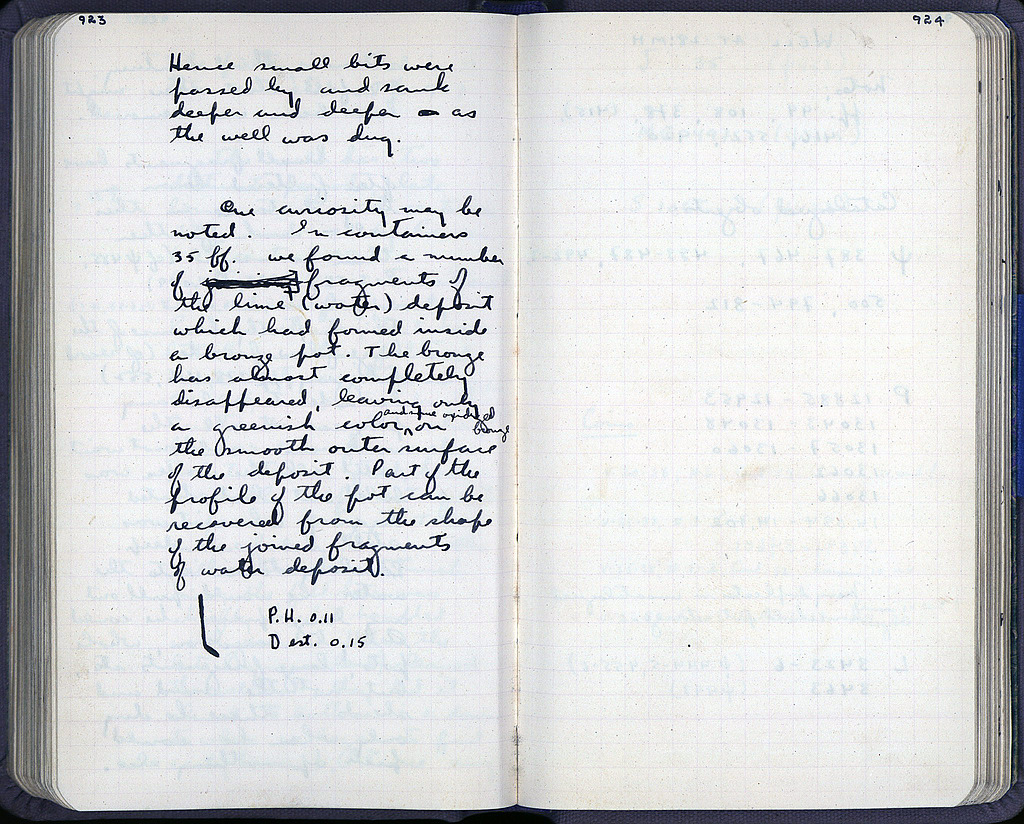 923
Hence small bits were
passed by and sank
deeper and deeper – as
the well was dug.
One curiosity may be
noted. In containers
35 ff. we found a number
of fragments of
the lime (water) deposit
which had formed inside
a bronze pot. The bronze
has almost completely
disappeared, leaving only
a greenish color, and some oxidized bronze on
the smooth outer surface
of the deposit. Part of the
profile of the pot can be
recovered from the shape
of the joined fragments
of water deposit.
P.H. 0.11
D est. 0.15
924